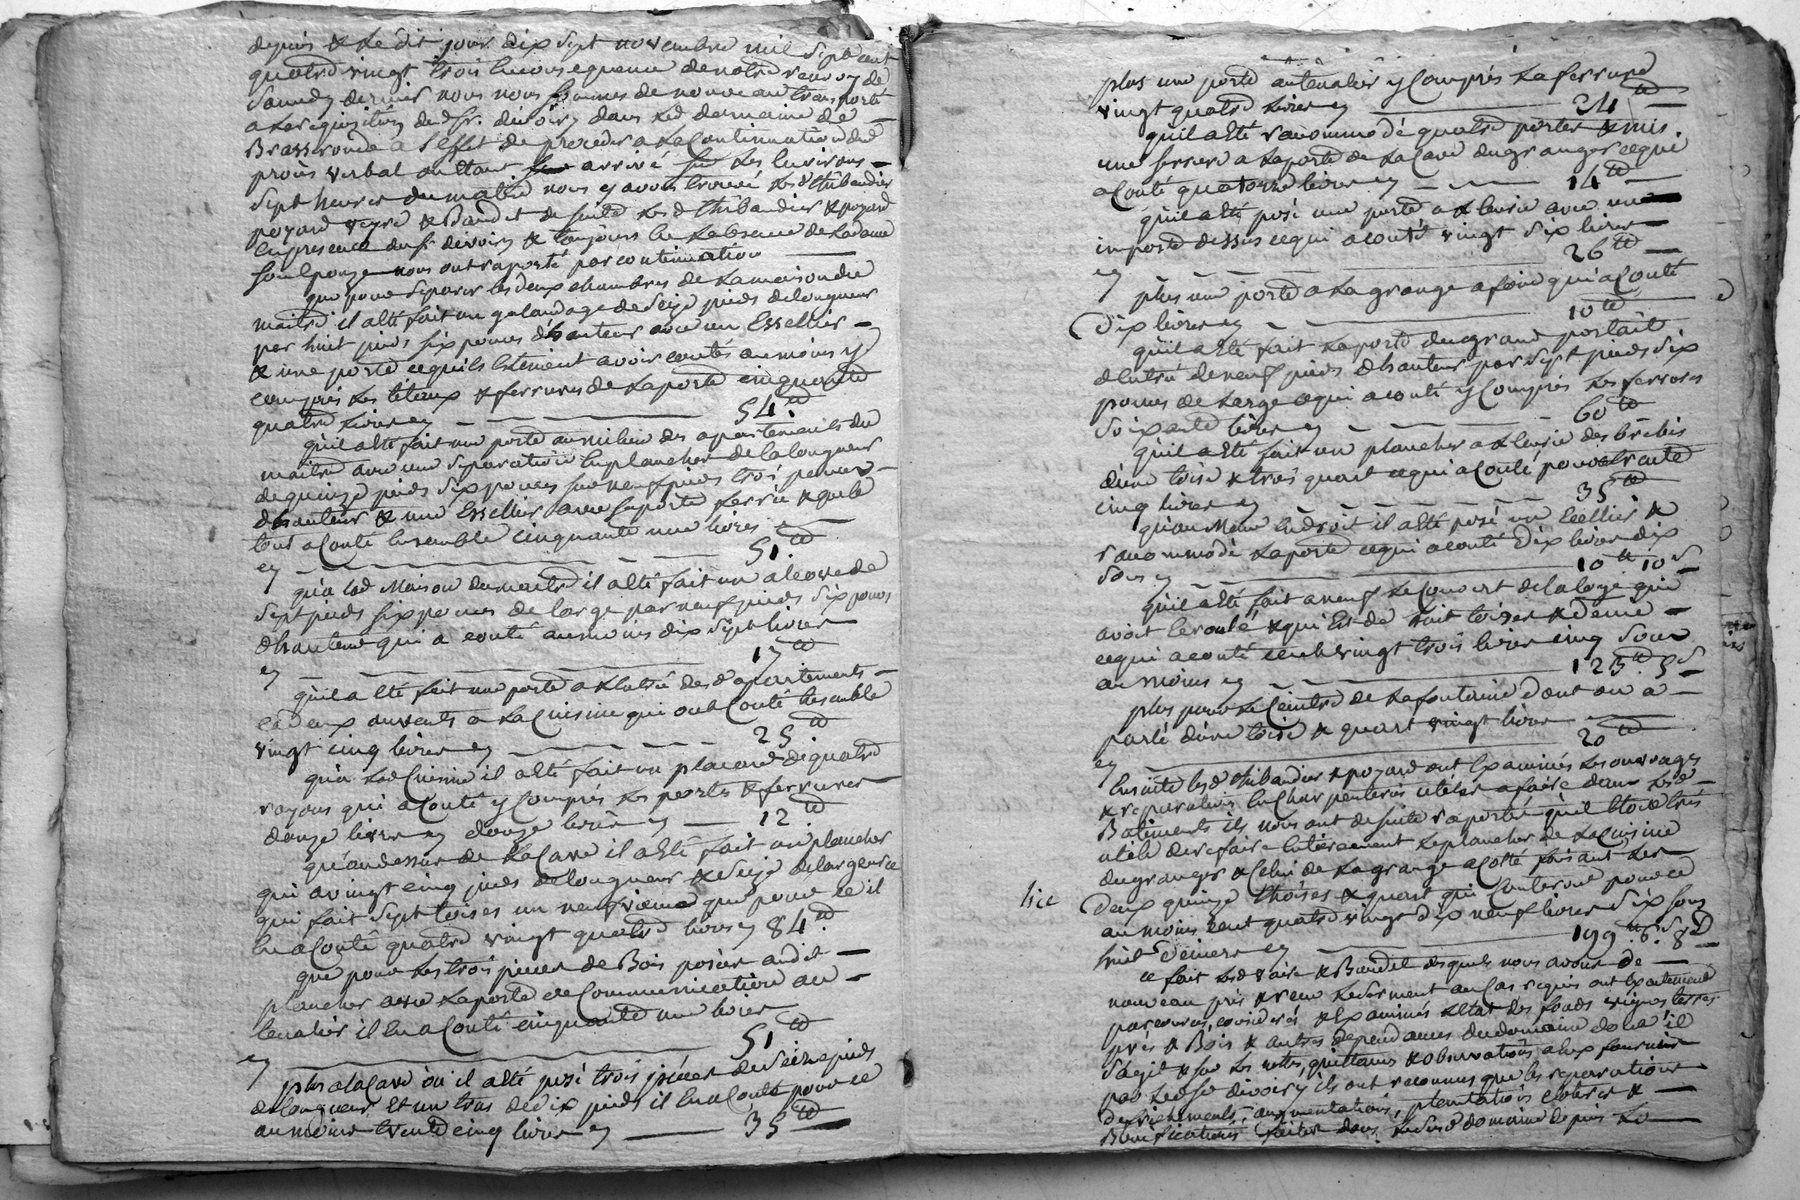 depuis & Le dit jour dix sept novembre mil sept cent
quatre vingt trois En consequence de notre renvoy de
Samedy dernier nous nous sommes de nouveau transporté
a La requisition dud sr. devoiry dans Led domaine de
Brasseronde a l'effet de proceder a La Continuation du
procès verbal ou étant arrivé Les Environs
Sept heures du matin nous y avons trouvé Lesd thibaudier
poyard veyre & Baudit de suite Lesd thibaudier & poyard
En presence dud sr devoiry & toujours En Labsence de Ladame
son Epouze nous ont raporté par continuation
que pour Separer les deux chambres de La maison du
maitre il a Eté fait un galandage de Seize pieds de longueur
par huit pieds six pouces d'hauteur avec un Essellier
& une porte ce qu'ils Estiment avoir coutés au moins y
compris Les téteaux & ferrures de La porte cinquante
quatre Livres cy 54.tt
qu'il a Eté fait une porte au milieu des apartements du
maitre avec une Separation En plancher de la longueur
de quinze pieds six pouces sur neuf pieds trois pouces
d'hauteur & une Essellier avec Saporte ferrée & que le
tout a Couté Ensemble Cinquante une livres
cy 51.tt
qu'a lad Maison du maitre il a Eté fait un alcove de
Sept pieds six pouces de large par neuf pieds six pouces
d'hauteur qui a couté au moins dix sept livres
cy 17tt
qu'il a Eté fait une porte a L'Entrée desd apartements
Et deux auvents a La Cuisine qui ont Couté Ensemble
vingt cinq livres cy 25.tt
qu'a Lad Cuisine il a Eté fait un placard de quatre
rayons qui a Couté y Compris Les portes & ferrures
douze livres cy douze livres cy 12.tt
qu'au dessus de La Cave il a Eté fait un plancher
qui a vingt cinq pieds de longueur & Seize de largeur ce
qui fait Sept toises un neuvieme que pour ce il
En a Couté quatre vingt quatre livres cy 84.tt
que pour Les trois pieces de Bois posées audit
plancher avec La porte de Communication au
tenalier il En a Couté cinquante une livres
cy 51.tt
plus a la Cave où il a Eté posé trois pieces de Seize pieds
de longueur Et un tras de dix pieds il En a Couté pour ce
au moins trente cinq livres cy 35tt
plus une porte au tenalier y Compris La ferrure
vingt quatre Livres cy 24tt
qu'il a Eté racommodé quatre portes & mis
une serrure a La porte de La Cave du granger ce qui
a Couté quatorze livres cy 14tt
qu'il a Eté posé une porte a L'Ecurie avec un
imposte dessus ce qui a couté vingt six livres
cy 26tt
plus une porte a La grange a foin qui a Couté
Dix livres cy 10tt
qu'il a Eté fait La porte du grand portail
d'Entrée de neuf pieds d'hauteur par Sept pieds six
pouces de Large ce qui a couté y Compris Les ferrures
Soixante livres cy 60tt
qu'il a Eté fait un plancher a L'Ecurie des brebis
d'une toise & trois quart ce qui a Couté pour trente
cinq livres cy 35tt
qu'au Meme Endroit il a Eté posé un Esellier &
racommodé La porte ce qui a couté Dix livres dix
Sous cy 10tt 10s
qu'il a Eté fait a neuf Le Couvert de la loge qui
avoit Ecroulé & qui Est de huit toises & demie
ce qui a couté Cent vingt trois livres cinq Sous
au moins cy 123tt. 5s
plus pour Le Ceintre de La fontaine dont on a
parlé d'une toise & quart vingt livres
cy 20tt
Ensuite lesd thibaudier & poyard ont Examinés Les ouvrages
& reparations En Charpenteries utiles a faire dans Lesd
Batiments ils nous ont de suite raporté qu'il Etoit très
utile de refaire Entierement Le plancher de La Cuisine
du granger & Celui de La grange a Coté faisant Les
lice
Deux quinze thoises & quart qui Couteront pour ce
au moins Cent quatre vingt dix neuf livres Six sous
huit Deniers cy 199tt. 6s. 8d
ce fait Lesd & Baudit desquels nous avons de
nouveau pris & reçu Le serment au Cas requis ont Exactement
parcourus, considerés & Examinés L'Etat des fonds vignes terres
prés & Bois & autres dependances du domaine dont il
S'agit & sur Les nottes, quittances & observations a Eux fournies
par Ledsr devoiry ils ont reconnus que les reparations
defrichements, augmentations, plantations &
Bonifications faites dans Ledit domaine depuis Le